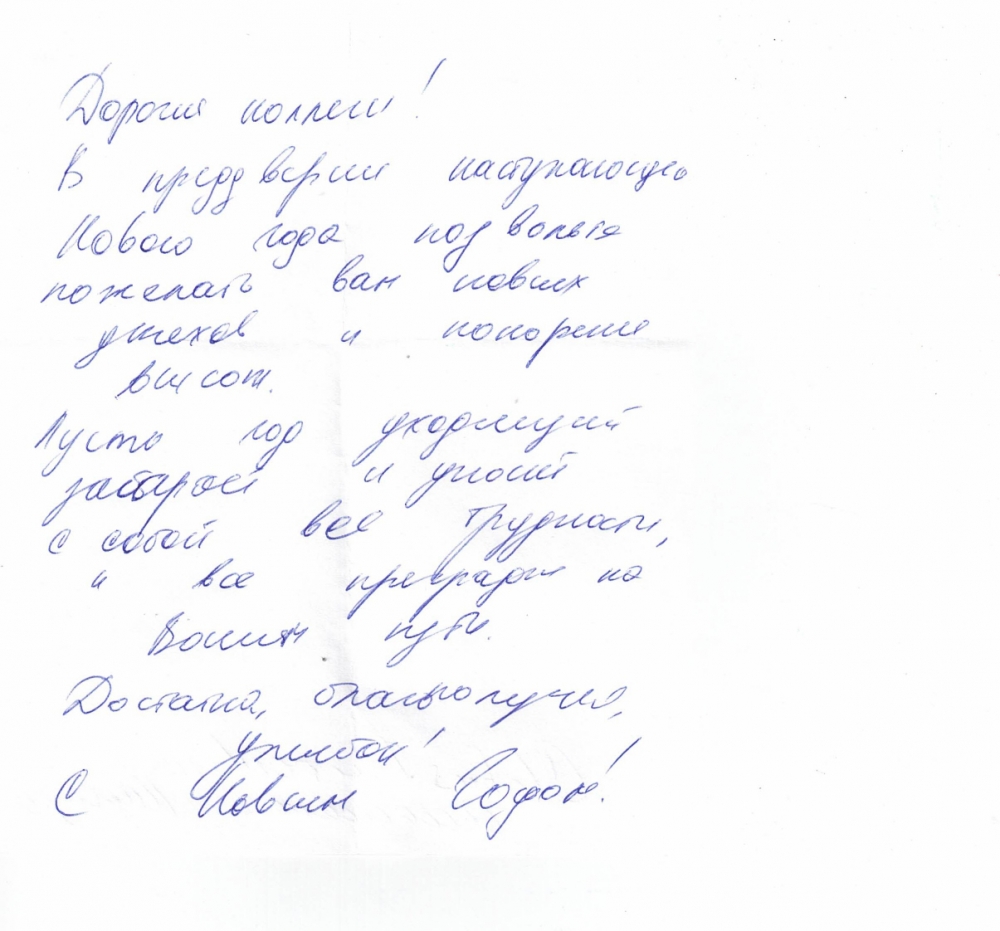 Дорогие коллеги!
В преддверии наступающего
Нового года позвольте
пожелать вам новых
успехов и покорения
высот.
Пусть год уходящий
заберет и уносит
с собой все трудности,
и все преграды на
Вашем пути.
Достатка, благополучия,
улыбок!
С Новым Годом!